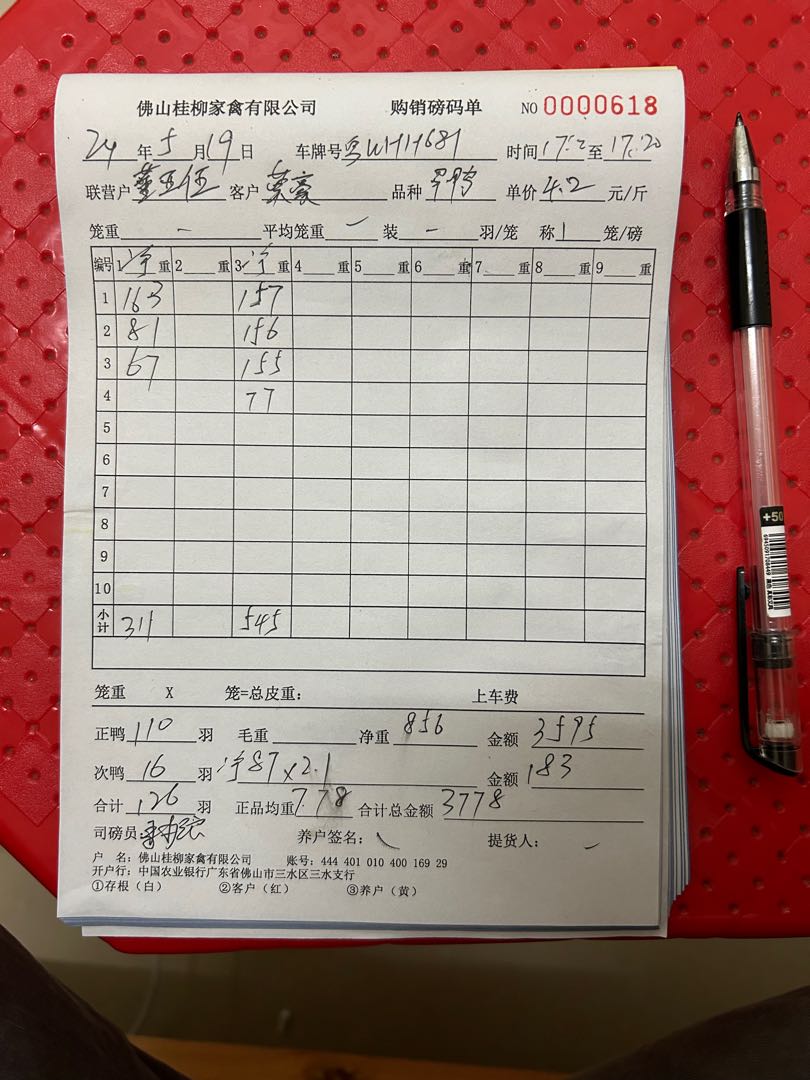 佛山桂柳家禽有限公司 购销磅码单 NO 0000618
24 年 5 月 19 日 车牌号 粤WHH681 时间 17: 至 17:20
联营户 客户 荣豪 品种 单价 4.2 元/斤
笼重 - 平均笼重 - 装 - 羽/笼 称 1 笼/磅
编号 1 净 重 2 重 3 净 重 4 重 5 重 6 重 7 重 8 重 9 重
1 163 157
2 81 156
3 67 155
4 77
5
6
7
8
9
10
小计 311 545
笼重 X 笼=总皮重: 上车费
正鸭 110 羽 毛重 净重 856 金额 3595
次鸭 16 羽 净87×2.1 金额 183
合计 126 羽 正品均重 7.78 合计总金额 3778
司磅员: 养户签名: 提货人: -
户 名: 佛山桂柳家禽有限公司 账号: 444 401 010 400 169 29
开户行: 中国农业银行广东省佛山市三水区三水支行
①存根（白） ②客户（红） ③养户（黄）
+50